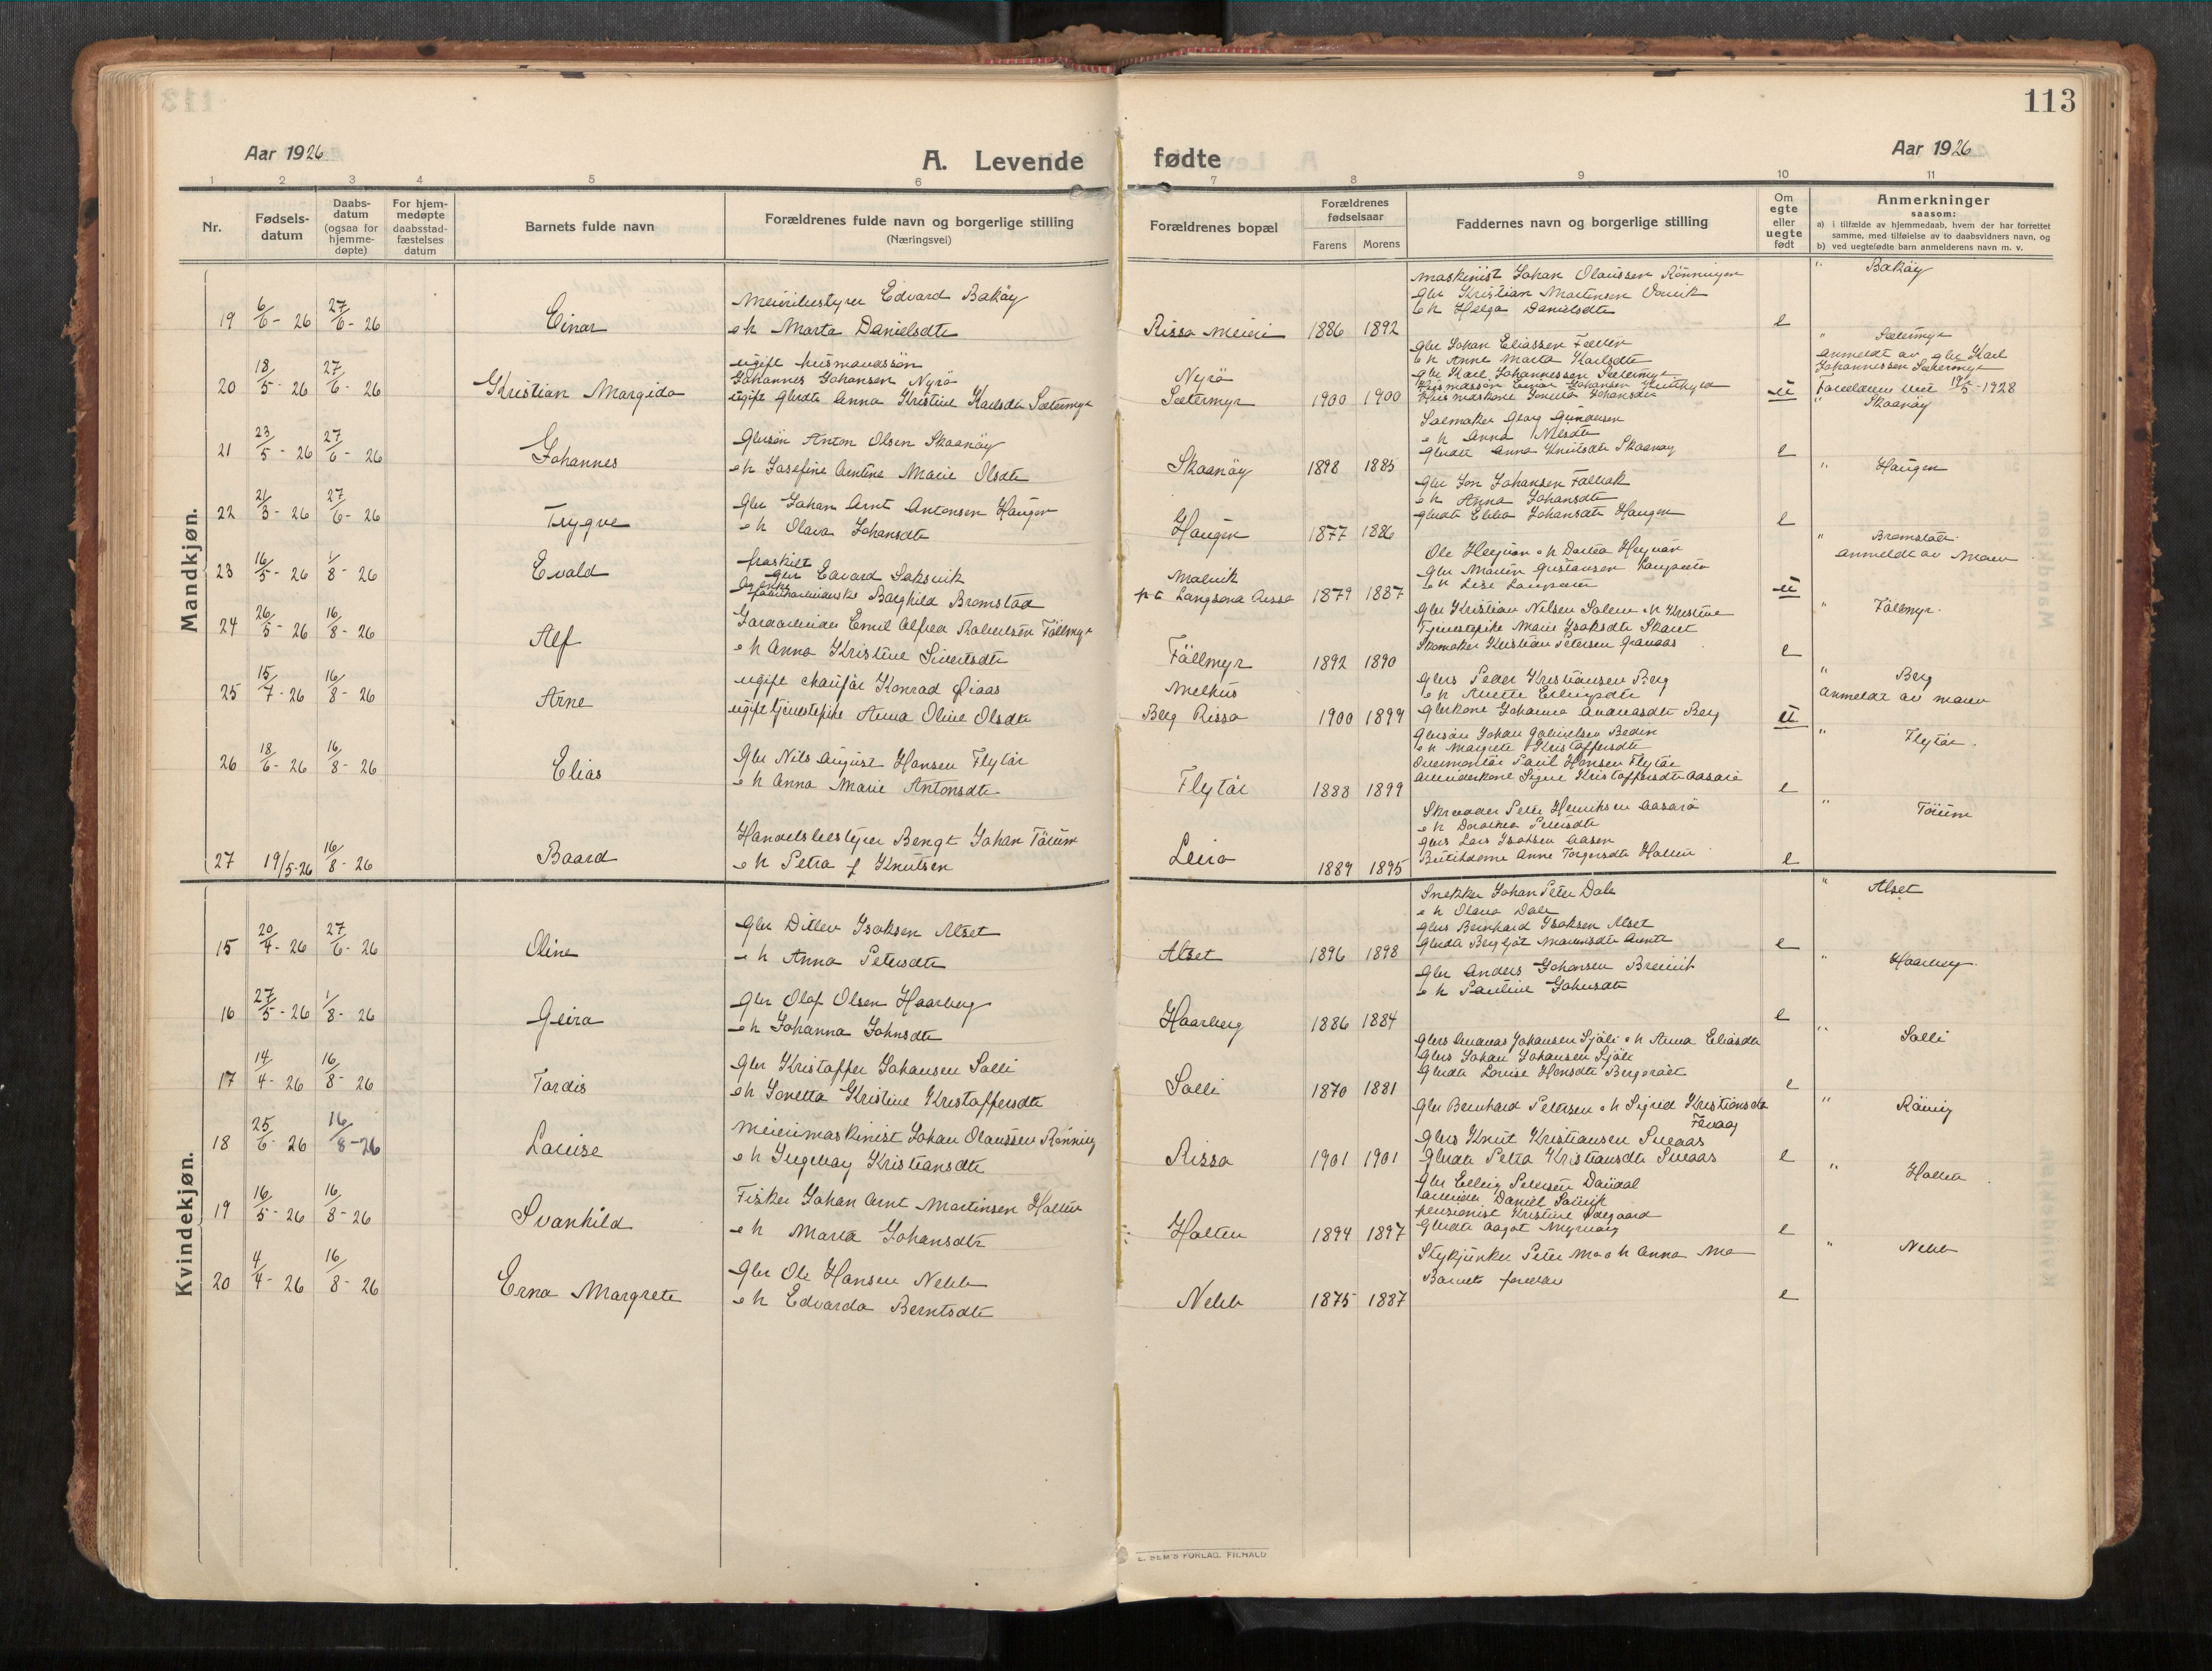 113
Aar 1926
A. Levende fødte
Aar 1926
1 2 3 4 5 6 7 8 9 10 11
Nr.
Fødsels-
datum
Daabs-
datum
(ogsaa for
hjemme-
døpte)
For hjem-
medøpte
daabsstad-
fæstelses
datum
Barnets fulde navn
Forældrenes fulde navn og borgerlige stilling
(Næringsvei)
Forældrenes bopæl
Forældrenes
fødselsaar
Farens Morens
Faddernes navn og borgerlige stilling
Om
egte
eller
uegte
født
Anmerkninger
saasom:
a) i tilfælde av hjemmedaab, hvem der har forrettet
samme, med tilføielse av to daabsvidners navn, og
b) ved uegtefødte barn anmelderens navn m. v.
Mandkjøn.
19 6/6-26 27/6-26 Einar
Meieribestyrer Edvard Bakøy
e h Marta Danielsdtr
Rissa Meieri 1886 1892
Maskinist Johan Olaussen Rønningen
Gbr Kristian Martensen
e h Helga Danielsdtr
e
" Bakøy
20 18/5-26 27/6-26 Kristian Margido
ugift husmandssøn
Johannes Johansen Nyrø
ugift Gbrdtr Anna Kristine Karlsdtr Sætermyr
Nyrø
Sætermyr 1900 1900
Gbr Johan Eliassen
e h Anne Marta Karlsdtr
Gbr Karl Johannessen Sætermyr
Johansen
Johansdtr
u
" Sætermyr
Anmeldt av gbr Karl
Johannessen Sætermyr
Forældrene viet 19/5-1928
21 23/5-26 27/6-26 Johannes
Gbrsøn Anton Olsen Skaanøy
e h Josefine Arntine Marie Olsdtr
Skaanøy 1898 1885
Salmaker Georg Gundersen
e h Anna Nilsdtr
Gbrdtr Anna Knutsdtr Skaanøy
e
" Skaanøy
22 21/3-26 27/6-26 Trygve
Gbr Johan Arnt Antonsen Haugen
e h Olava Johansdtr
Haugen 1877 1886
Gbr Jon Johansen
e h Anna Johansdtr
Gbrdtr Ebba Johansdtr Haugen
e
" Haugen
23 16/5-26 1/8-26 Evald
fraskilt
gbr Edvard Saksvik
Borghild Bromstad
Malvik
pt Langsand Rissa 1879 1887
Ole
Gbr Martin Gustavsen
e h Lise
u
" Bromstad
anmeldt av Moren
24 26/5-26 16/8-26 Alf
Gaardarbeider Emil Alfred Robertsen Fällmyr
e h Anna Kristine Sivertsdtr
Fällmyr 1892 1890
Gbr Kristian Nilsen Solem e h Kristine
Tjenestepike Marie Isaksdtr Skaret
Skomaker Kristian Petersen Granaas
e
" Fällmyr
25 15/7-26 16/8-26 Arne
ugift chaufør Konrad Øiaas
ugift tjenestepike Anna Oline Olsdtr
Melhus
Berg Rissa 1900 1899
Gbrs Peder Kristiansen Berg
e h Anette Ellingsdtr
Gbrkone Johanna Andreasdtr Berg
u
" Berg
Anmeldt av moren
26 18/6-26 16/8-26 Elias
Gbr Nils August Hansen Flytår
e h Anna Marie Antonsdtr
Flytår 1888 1899
Gbrsøn Johan Gabrielsen
e h Margrete Kristoffersdtr
Paul Hansen Flytår
Arbeiderkone Signe Kristoffersdtr Aasarø
e
" Flytår
27 19/5-26 16/8-26 Baard
Handelsbestyrer Bengt Johan Tørum
e h Petra f Knutsen
Leira 1889 1895
Skrædder Peter Henriksen Aasarø
e h Dorothea Petersdtr
Gbrs Lars Isaksen Aasen
Butikdame Anne Torgersdtr Holten
e
" Tørum
Kvindekjøn.
15 20/4-26 27/6-26 Oline
Gbr Ditlev Isaksen Alset
e h Anna Petersdtr
Alset 1896 1898
Snekker Johan Peter Dale
e h Olava Dale
Gbrs Bernhard Isaksen Alset
Gbrdtr Bergljot
e
" Alset
16 27/5-26 1/8-26 Geira
Gbr Olaf Olsen Haarberg
e h Johanna Johnsdtr
Haarberg 1886 1884
Gbr Anders Johansen Brevik
e h Pauline Johnsdtr
e
" Haarberg
17 14/4-26 16/8-26 Tordis
Gbr Kristoffer Johansen Solli
e h Jonetta Kristine Kristoffersdtr
Solli 1870 1881
Gbrs Andreas Johansen Sjøli e h Anna Eliasdtr
Gbrs Johan Johansen Sjøli
Gbrdtr Louise Hansdtr
e
" Solli
18 25/6-26 16/8-26 Louise
Meierimaskinist Johan Olaussen Rønning
e h Ingebor Kristiansdtr
Rissa 1901 1901
Gbr Bernhard Petersen e h Sigrid Kristiansdtr
Gbrs Knut Kristiansen Sneaas
Gbrdtr Petra Kristiansdtr Sneaas
e
" Rønnig
19 16/5-26 16/8-26 Svanhild
Fisker Johan Arnt Martinsen Holten
e h Marta Johansdtr
Holten 1894 1897
Gbr Elling Petersen
Arbeider Daniel
pensionist Kristine Ødegaard
Gbrdtr Aagot
e
" Holten
20 4/4-26 16/8-26 Erna Margrete
Gbr Ole Hansen Nebb
e h Edvarda Berntsdtr
Nebb 1875 1887
Stykjunker Peter Mo e h Anna Mo
Barnets forældre
e
" Nebb
E. SEM'S FORLAG, F.HALD